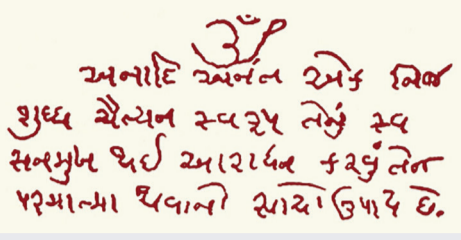 ૐ
અનાદિ અનંત એક નિજ
શુધ્ધ ચૈત્યન સ્વરૂપ તેનું સ્વ
સનમુખ થઈ આરાધન કરવું તેજ
પરમાત્મા થવાનો સાચો ઉપાય છે.